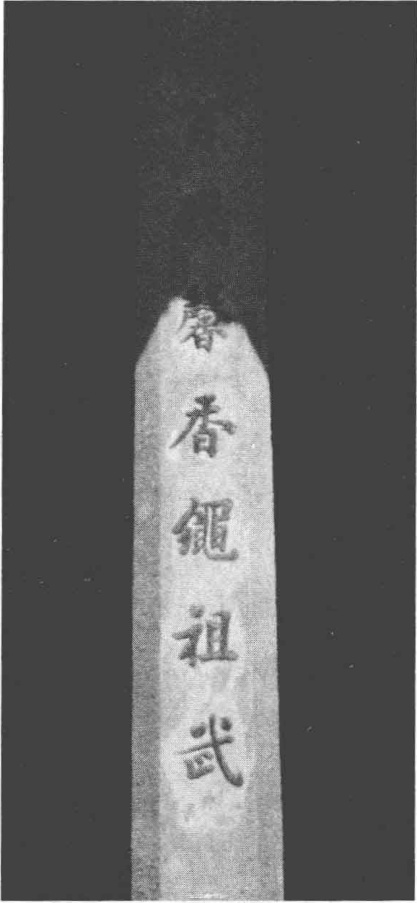 馨香繩祖武